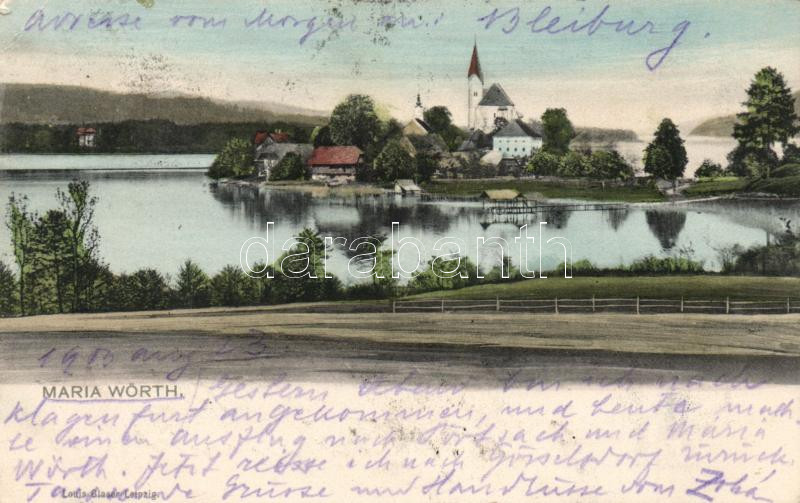 Adresse vom Morgen an: Bleiburg.
darabanth
MARIA WÖRTH.
Gestern Abend bin ich nach
Klagenfurt angekommen, und heute mach-
se einen Ausflug nach Pörtsach und Maria
Wörth. Jetzt reise ich nach Görselsdorf zurück.
Tausende Grüsse und Handküsse vom
Louis Glaser, Leipzig.